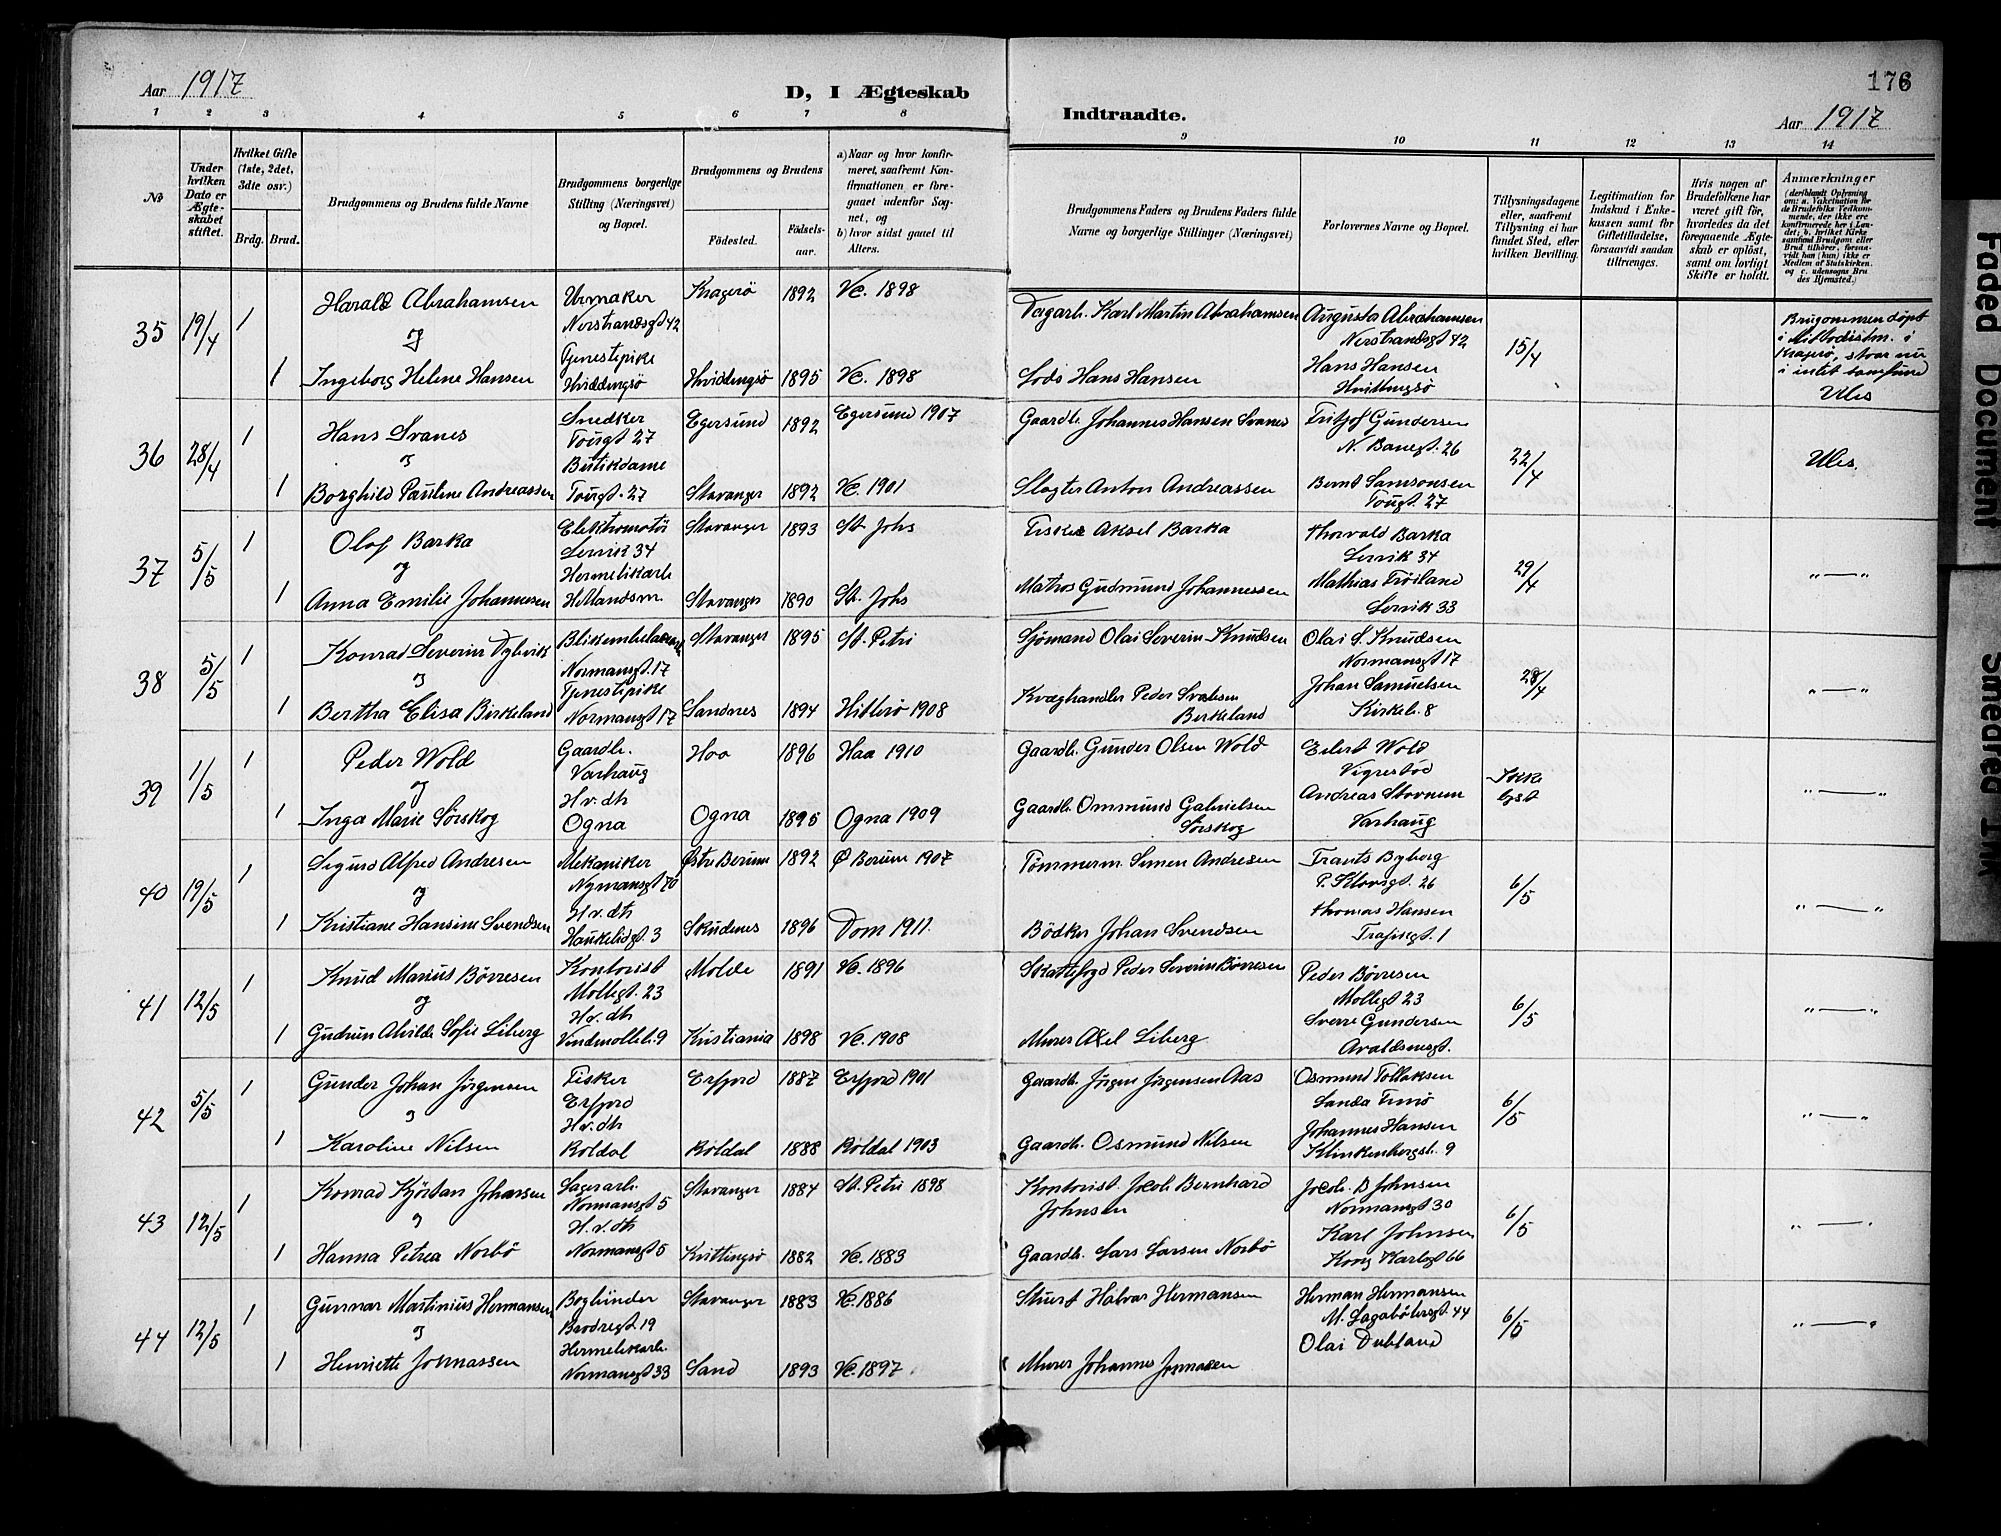 176
Aar 1917
D, I Ægteskab
Indtraadte.
Aar 1917
1 2 3 4 5 6 7 8 9 10 11 12 13 14
№
Under hvilken Dato er Ægteskabet stiftet.
Hvilket Gifte (1ste, 2det, 3dte osv.)
Brdg. Brud.
Brudgommens og Brudens fulde Navne
Brudgommens borgerlige Stilling (Næringsvei) og Bopæl.
Brudgommens og Brudens
Födested.
Födselsaar.
a) Naar og hvor konfirmeret, saafremt Konfirmationen er foregaaet udenfor Sognet, og
b) hvor sidst gaaet til Alters.
Brudgommens Faders og Brudens Faders fulde Navne og borgerlige Stillinger (Næringsvei)
Forlovernes Navne og Bopæl.
Tillysningsdagene eller, saafremt Tillysning ei har fundet Sted, efter hvilken Bevilling.
Legitimation for Indskud i Enkekassen samt for Giftetilladelse, forsaavidt saadan tiltrænges.
Hvis nogen af Brudefolkene har været gift för, hvorledes da det foregaaende Ægteskab er oplöst, samt om lovligt Skifte er holdt.
Anmærkninger
(deriblandt Oplysning om: a. Vakcination for de Brudefolks Vedkommende, der ikke ere konfirmerede her i Landet; b. hvilket Kirkesamfund Brudgom eller Brud tilhörer, forsaavidt han (hun) ikke er Medlem af Statskirken, og c. udensogns Brudes Hjemsted.)
35 19/4 1 Harald Abrahamsen Urmaker Nerstrandsgt 42 Kragerö 1892 Vc. 1898 Dagarb. Karl Martin Abrahamsen Augusta Abrahamsen Nerstrandsgt 42 15/4
og
1 Ingeborg Helene Hansen Tjenestepike Hviddingsö Hviddingsö 1895 Vc. 1898 Lods Hans Hansen Hans Hansen Hvittingsö
döpt i Methodistm. i Kragerö, staar nu i intet samfund
36 28/4 1 Hans Svanes Snedker Tougt 27 Egersund 1892 Egersund 1907 Gaardb. Johannes Hansen Svanes Fritjof Gundersen N. Banegt. 26 22/4
og
1 Borghild Pauline Andreassen Butikdame Tougt. 27 Stavanger 1892 Vc. 1901 Slagter Anton Andreassen Bernt Samsonsen Tougt. 27
37 5/5 1 Olaf Barka Elektromotör Lervik 34 Stavanger 1893 St. Johs Fisker Aksel Barka Thorvald Barka Lervik 34 29/4 „—„
og
1 Anna Emilie Johannesen Hermetikarb Stavanger 1890 St. Johs Matros Gudmund Johannessen Mathias Tröiland Lervik 33
38 5/5 1 Konrad Severin Dybvik Normansgt. 17 Stavanger 1895 St. Petri Sjömand Olai Severin Knudsen Olai S. Knudsen Normansgt 17 28/4 „—„
og
1 Bertha Elisa Birkeland Tjenestepike Normansgt 17 Sandnes 1894 Hitterö 1908 Kvæghandler Peder Birkeland Johan Samuelsen Kirkeb. 8
39 1/5 1 Peder Wold Gaardb. Varhaug Haa 1896 Haa 1910 Gaardb. Gunder Olsen Wold Eilert Wold Vigrestad Ikke lyst „—„
og
1 Inga Marie Sörskog H.v.dtr Ogna Ogna 1895 Ogna 1909 Gaardb. Ommund Gabrielsen Sörskog Andreas Stornem Varhaug
40 19/5 1 Sigurd Alfred Andresen Mekaniker Nymansgt 70 Østre Berum 1892 Ø Berum 1907 Tömmerm. Simen Andresen Frants Byberg P. Klowsgt. 26 6/5 „—„
og
1 Kristiane Hansine Svendsen H.v.dtr Haukeligt. 3 Skudenes 1896 Dom 1911. Bödker Johan Svendsen Thomas Hansen
41 12/5 1 Knud Marius Börresen Kontorist Mollegt. 23 Molde 1891 Vc. 1896 Skattefogd Peder Severin Börresen Peder Börresen Mollegt 23 6/5 „—„
og
1 Gudrun Alvilde Sofie Liberg H.v.dtr Vindmolleb. 9 Kristiania 1898 Vc. 1908 Murer Axel Liberg Sverre Gundersen Avaldsnesgt.
42 5/5 1 Gunder Johan Jörgensen Fisker Erfjord Erfjord 1887 Erfjord 1901 Gaardb. Jörgen Jörgensen Aas Osmund Tollaksen 6/5 „—„
og
1 Karoline Nilsen H.v.dtr Röldal Röldal 1888 Röldal 1903 Gaardb. Osmund Nilsen Johannes Hansen Klinkenbergsb. 9
43 12/5 1 Konrad Kjörstan Johnsen Lagerarb. Normansgt 5 Stavanger 1884 St. Petri 1898 Kontorist. Jacob Bernhard Johnsen Jacob. B Johnsen Normansgt 30 6/5 „—„
og
1 Hanna Petrea Norbö H.v.dtr Normansgt 5 Kvittingsö 1882 Vc. 1883 Gaardb. Lars Larsen Norbö Karl Johnsen Kong Karlsgt 66
44 12/5 1 Gunnar Martinius Hermansen Bogbinder Brodregt. 19 Stavanger 1883 Vc. 1886 Stuert Halvar Hermansen Herman Hermansen 6/5 „—„
og
1 Henriette Jonnassen Hermetikarb. Normansgt 33 Sand 1893 Vc. 1897 Murer Johannes Jonnassen Olai Dubland
Faded Document
Smeared Ink